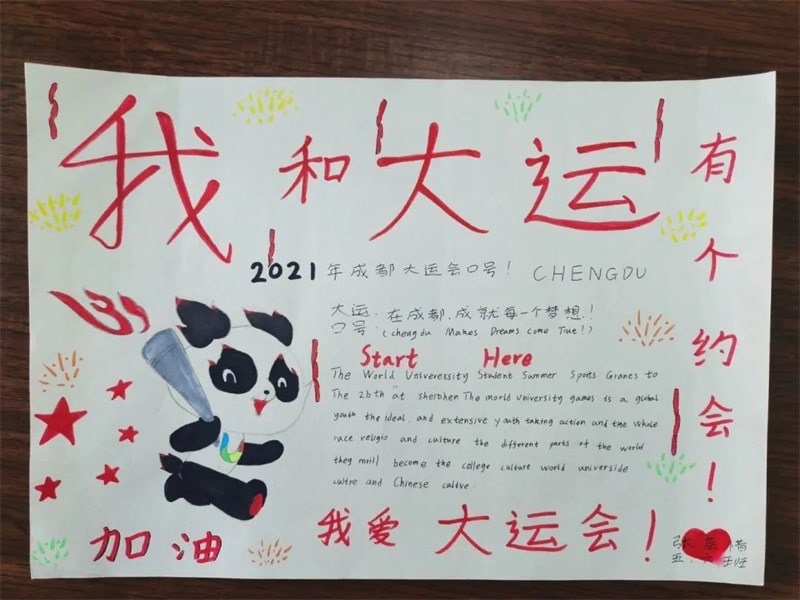 我和大运有个约会！
2021年成都大运会口号! CHENGDU
大运口号: 在成都,成就每一个梦想!
(chengdu Makes Dreams come True!)
Start Here
The World Unsverersity Student Summer Sports Granes to
The 26th at sherohen The morld university games is a global
youth the ideal, and extensive youth taking action and the whole
race religio and culture the different parts of the world.
they mrill become the college culture world universide
cultre and Chinese cultve.
加油
我爱大运会!